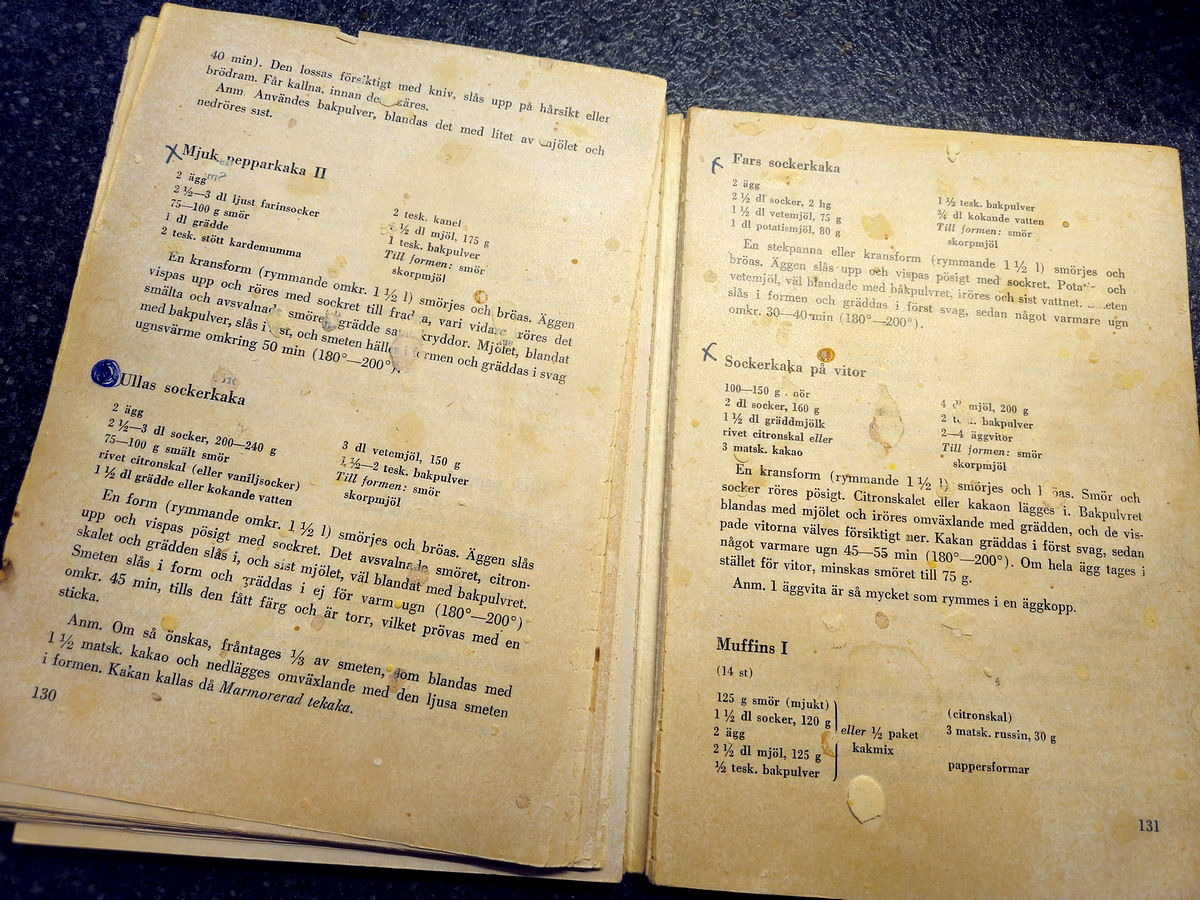 40 min). Den lossas försiktigt med kniv, slås upp på hårsikt eller
brödram. Får kallna, innan
Anm. Användes bakpulver, blandas det med litet av mjölet och
nedröres sist.
Mjuk pepparkaka II
2 ägg
2 ½—3 dl ljust farinsocker
75—100 g smör
1 dl grädde
2 tesk. stött kardemumma
2 tesk. kanel
½ dl mjöl, 175 g
1 tesk. bakpulver
Till formen: smör
skorpmjöl
En kransform (rymmande omkr. 1 ½ l) smörjes och bröas. Äggen
vispas upp och röres med sockret till vari röres det
smälta och avsvalnade smöret, grädde kryddor. Mjölet, blandat
med bakpulver, slås i och smeten formen och gräddas i svag
ugnsvärme omkring 50 min (180°—200°).
Ullas sockerkaka
2 ägg
2 ½—3 dl socker, 200—240 g
75—100 g smält smör
rivet citronskal (eller vaniljsocker)
1 ½ dl grädde eller kokande vatten
3 dl vetemjöl, 150 g
1 ½—2 tesk. bakpulver
Till formen: smör
skorpmjöl
En form (rymmande omkr. 1 ½ l) smörjes och bröas. Äggen slås
upp och vispas pösigt med sockret. Det avsvalnade smöret, citron-
skalet och grädden slås i, och sist mjölet, väl blandat med bakpulvret.
Smeten slås i form och gräddas i ej för varm ugn (180°—200°)
omkr. 45 min, tills den fått färg och är torr, vilket prövas med en
sticka.
Anm. Om så önskas, fråntages ⅓ av smeten, som blandas med
1 ½ matsk. kakao och nedlägges omväxlande med den ljusa smeten
i formen. Kakan kallas då Marmorerad tekaka.
130
Fars sockerkaka
2 ägg
2 ½ dl socker, 2 hg
1 ½ dl vetemjöl, 75 g
1 dl potatismjöl, 80 g
1 ½ tesk. bakpulver
¾ dl kokande vatten
Till formen: smör
skorpmjöl
En stekpanna eller kransform (rymmande 1 ½ l) smörjes och
bröas. Äggen slås upp och vispas pösigt med sockret. och
vetemjöl, väl blandade med bakpulvret, iröres och sist vattnet.
slås i formen och gräddas i först svag, sedan något varmare ugn
omkr. 30—40 min (180°—200°).
Sockerkaka på vitor
100—150 g smör
2 dl socker, 160 g
1 ½ dl gräddmjölk
rivet citronskal eller
3 matsk. kakao
4 dl mjöl, 200 g
2 bakpulver
2—4 äggvitor
Till formen: smör
skorpmjöl
En kransform (rymmande 1 ½ l) smörjes och bröas. Smör och
socker röres pösigt. Citronskalet eller kakaon lägges i. Bakpulvret
blandas med mjölet och iröres omväxlande med grädden, och de vis-
pade vitorna välves försiktigt ner. Kakan gräddas i först svag, sedan
något varmare ugn 45—55 min (180°—200°). Om hela ägg tages i
stället för vitor, minskas smöret till 75 g.
Anm. 1 äggvita är så mycket som rymmes i en äggkopp.
Muffins I
(14 st)
125 g smör (mjukt)
1 ½ dl socker, 120 g
2 ägg
2 ½ dl mjöl, 125 g
½ tesk. bakpulver
eller ½ paket
kakmix
(citronskal)
3 matsk. russin, 30 g
pappersformar
131